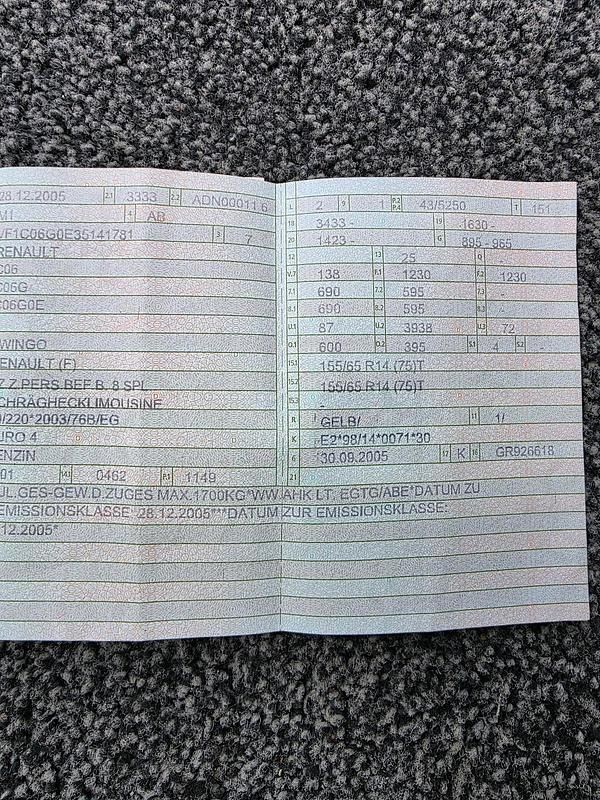 28.12.2005 2.1 3333 2.2 ADN00011 6
M1 4 AB
VF1C06G0E35141781 3 7
RENAULT
C06
C06G
C06G0E
TWINGO
RENAULT (F)
FZ.Z.PERS.BEF.B. 8 SPL
SCHRÄGHECKLIMOUSINE
0/220*2003/76B/EG
EURO 4
BENZIN
01 14.1 0462 P.1 1149
L 2 9 1 P.2 P.4 43/5250 T 151
18 3433 - 19 1630 -
20 1423 - G 895 - 965
12 13 25 Q -
V.7 138 F.1 1230 F.2 1230
7.1 690 7.2 595 7.3 -
8.1 690 8.2 595 8.3 -
U.1 87 U.2 3938 U.3 72
O.1 600 O.2 395 S.1 4 S.2 -
15.1 155/65 R14 (75)T
15.2 155/65 R14 (75)T
15.3
R GELB/ 11 1/
K E2*98/14*0071*30
6 30.09.2005 17 K 16 GR926618
21
ZUL.GES-GEW.D.ZUGES MAX.1700KG*WW.AHK LT. EGTG/ABE*DATUM ZU
EMISSIONSKLASSE: 28.12.2005***DATUM ZUR EMISSIONSKLASSE:
12.2005*